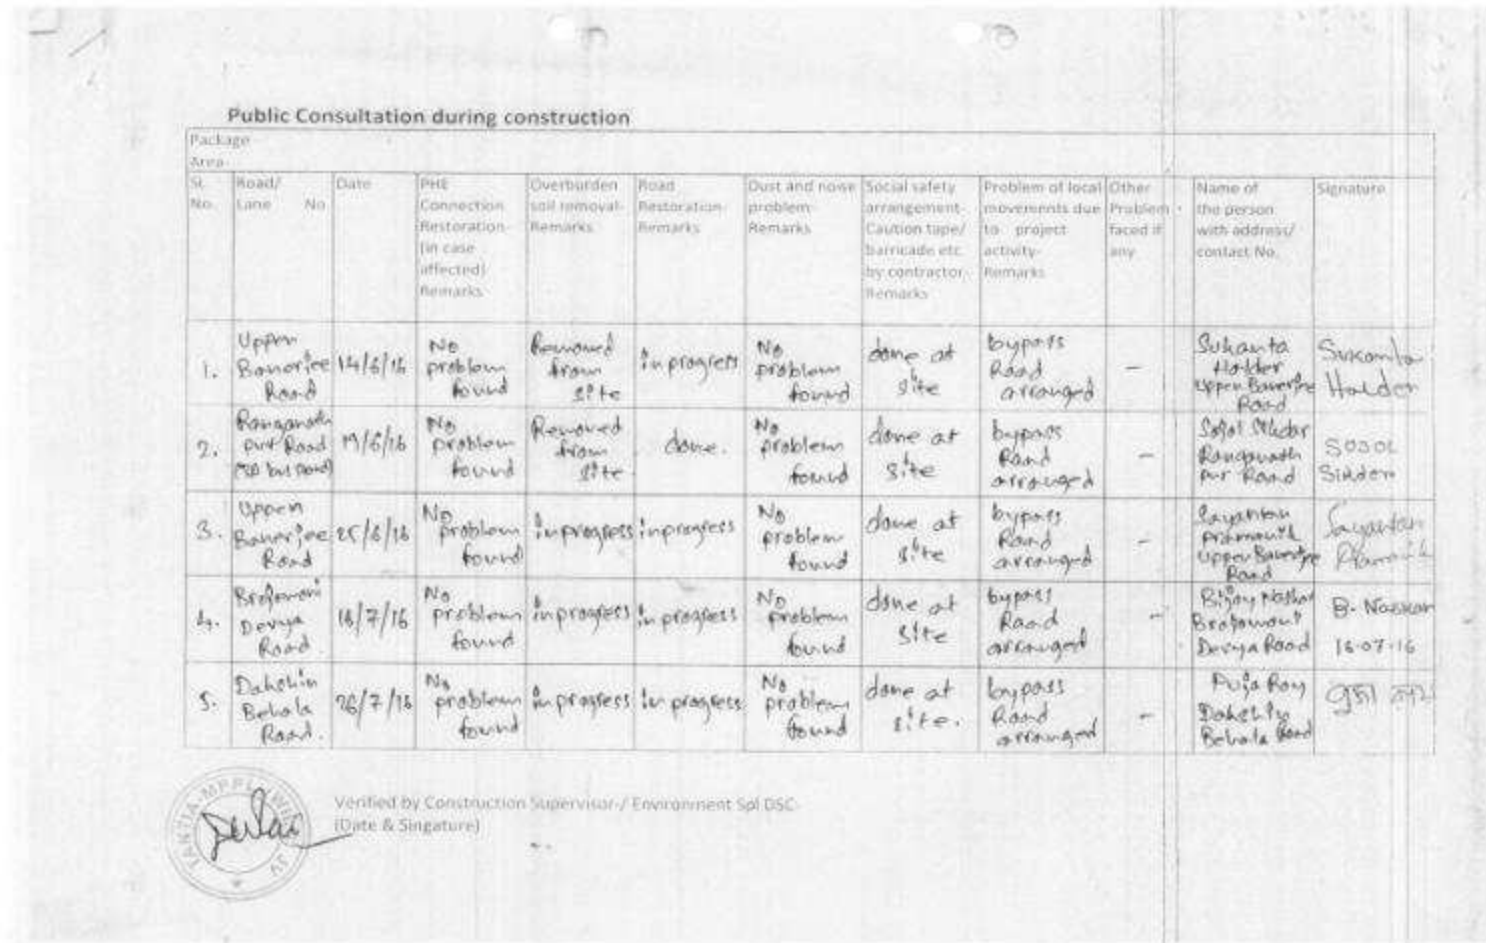 Public Consultation during construction
Package
Area
Sl. No. Road/ Lane No Date PHE Connection Restoration (in case affected) Remarks Overburden soil removal- Remarks Road Restoration- Remarks Dust and noise problem- Remarks Social safety arrangement- Caution tape/ barricade etc. by contractor- Remarks Problem of local movements due to project activity- Remarks Other Problem faced if any Name of the person with address/ contact No. Signature
1. Upper Banerjee Road 14/6/16 No problem found Removed from site in progress No problem found done at site bypass Road arranged – Sukanta Halder Upper Banerjee Road Sukanta Halder
2. Ranganath pur Road 19/6/16 No problem found Removed from site done. No problem found done at site bypass Road arranged – Sojol Sikdar Ranganath pur Road Sojol
3. Upper Banerjee Road 25/6/16 No problem found in progress in progress No problem found done at site bypass Road arranged – Sayantan pramanik Upper Banerjee Road Sayantan Pramanik
4. Brojomoni Devya Road 16/7/16 No problem found in progress in progress No problem found done at site bypass Road arranged – Bijoy Naskar Brojomoni Devya Road B. Naskar 16-07-16
5. Dakshin Behala Road. 26/7/16 No problem found in progress in progress No problem found done at site. bypass Road arranged – Puja Roy Dakshin Behala Road
TANTIA-MPPL
JV
Verified by Construction Supervisor-/ Environment Spl DSC-
(Date & Singature)